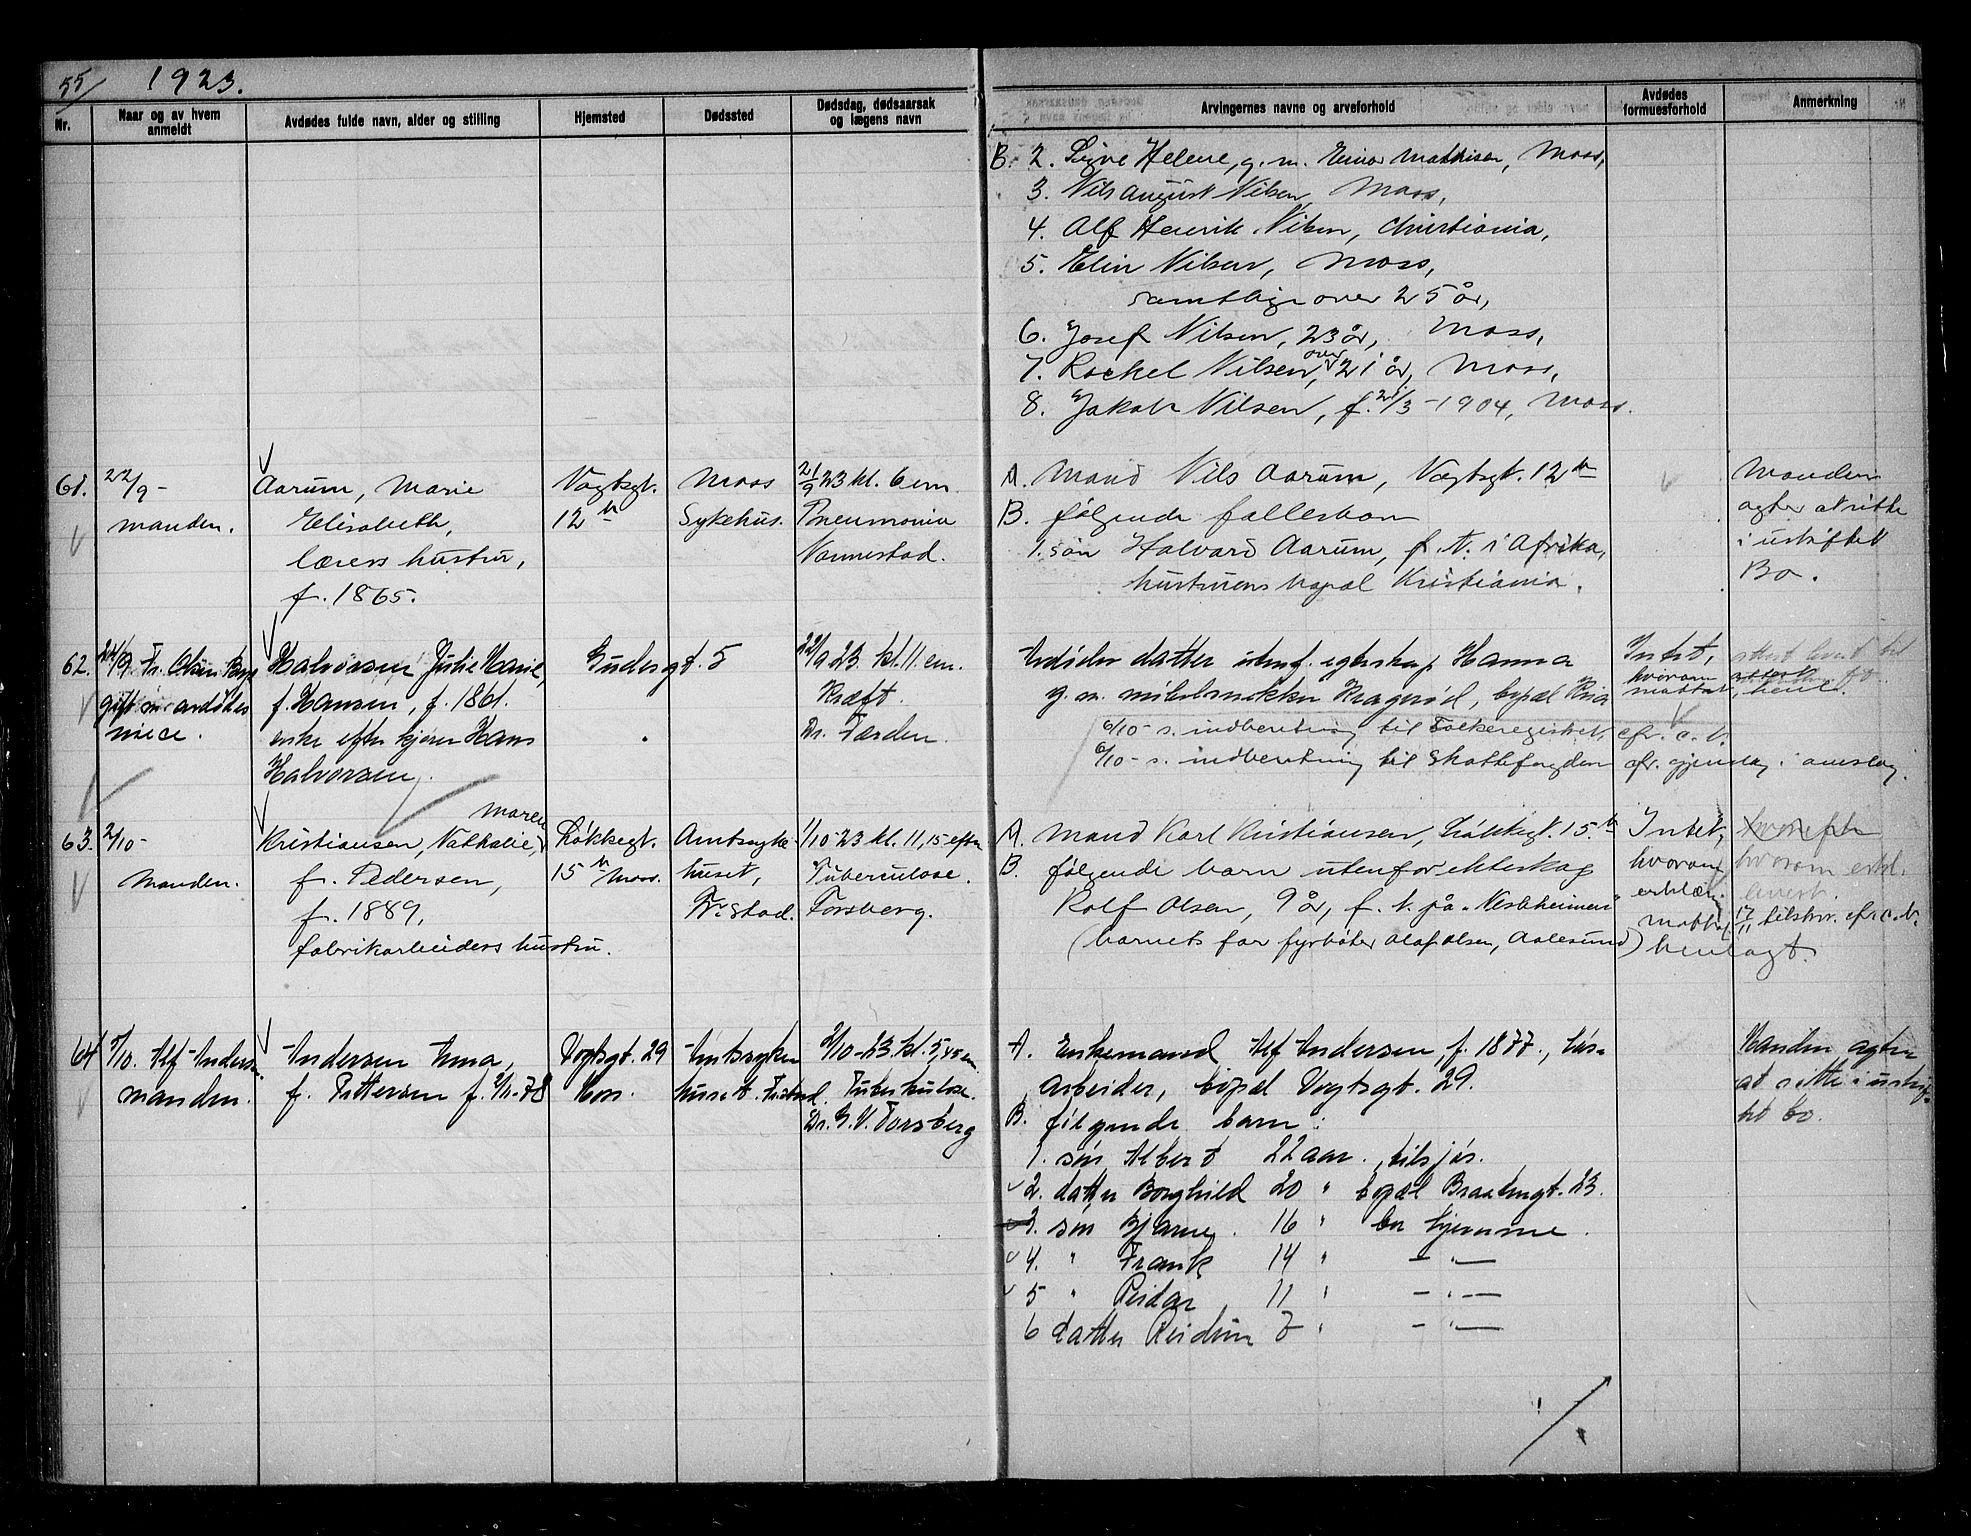 55/ 1923.
Nr.
Naar og av hvem anmeldt
Avdødes fulde navn, alder og stilling
Hjemsted
Dødssted
Dødsdag, dødsaarsak og lægens navn
Arvingernes navne og arveforhold
Avdødes formuesforhold
Anmerkning
B. 2. Signe Helene, g. m. Einar Mathisen, Moss,
3. Nils August Nilsen, Moss,
4. Alf Henrik Nilsen, Christiania,
5. Elin Nilsen, Moss,
samtlige over 25 år,
6. Josef Nilsen, 23 år, Moss,
7. Rackel Nilsen, over 21 år, Moss,
8. Jakob Nilsen, f. 21/3-1904, Moss.
61.
22/9-
manden.
Aarum, Marie
Elisabeth,
lærers hustru,
f. 1865.
Vogtsgt.
12 b
Moss
Sykehus.
21/9 23 kl. 6 em.
Pneumonia
Vannestad.
A. Mand Nils Aarum, Vogtsgt. 12 b
B. følgende fællesbarn
1. søn Halvard Aarum, f. t. i Afrika,
hustruens bopæl Kristiania.
Manden
agter at sitte
i uskiftet
Bo.
62.
24/9. Fr. Olsen
gift m avdødes
niece.
Halvorsen Julie Marie,
f. Hansen, f. 1861.
enke efter kjører Hans
Halvorsen.
Gudesgt. 5
22/9 23 kl. 11. em.
Kræft.
Dr. Færden.
datter utenf. egteskap Hanna
g. m. møbelsnekker Kragerød, bopæl Kria
6/10- s. indberetning til Folkeregistret,
6/10- s. indberetning til Skattefogden
Intet,
hvorom
mottat
cfr. c. b.
cfr. gjenslag i omslag.
63.
2/10-
manden.
Maren
Kristiansen, Nathalie,
f. Pedersen,
f. 1889,
fabrikarbeiders hustru.
Løkkegt.
15 b Moss.
Amtssyke-
huset,
Fr.stad.
1/10-23 kl. 11,15 efm
Tuberculose.
Forsberg.
A. Mand Karl Kristiansen, Løkkegt. 15 b
B. følgende barn utenfor ekteskap
Rolf Olsen, 9 år, f. t. på "Vestheimen"
(barnets far fyrbøter Olaf Olsen, Aalesund)
Intet,
hvorom
erklær.
mottat
henlagt.
hvorom erkl.
17/11 tilskr. cfr. c. b.
64
5/10. Alf Andersen
manden.
Andersen Anna,
f. Pettersen f. 78
Vogtsgt. 29
Mos.
Amtssyke
huset. Fr.stad.
2/10-23 kl. 5,45 em.
Tuberkulose.
Dr. G. V. Forsberg
A. Enkemand Alf Andersen, f. 1877., løs-
arbeider, bopæl Vogtsgt. 29.
B. følgende barn:
1. søn Albert 22 aar., tilsjøs.
2. datter Borghild 20 " bopæl Braatengt. 23.
3. søn Bjarne. 16 " bor hjemme.
4. " Frank 14 " - " -
5 " Reidar 11 " - " -
6 datter Reidun 7 " - " -
Manden agter
at sitte i uskif-
tet bo.